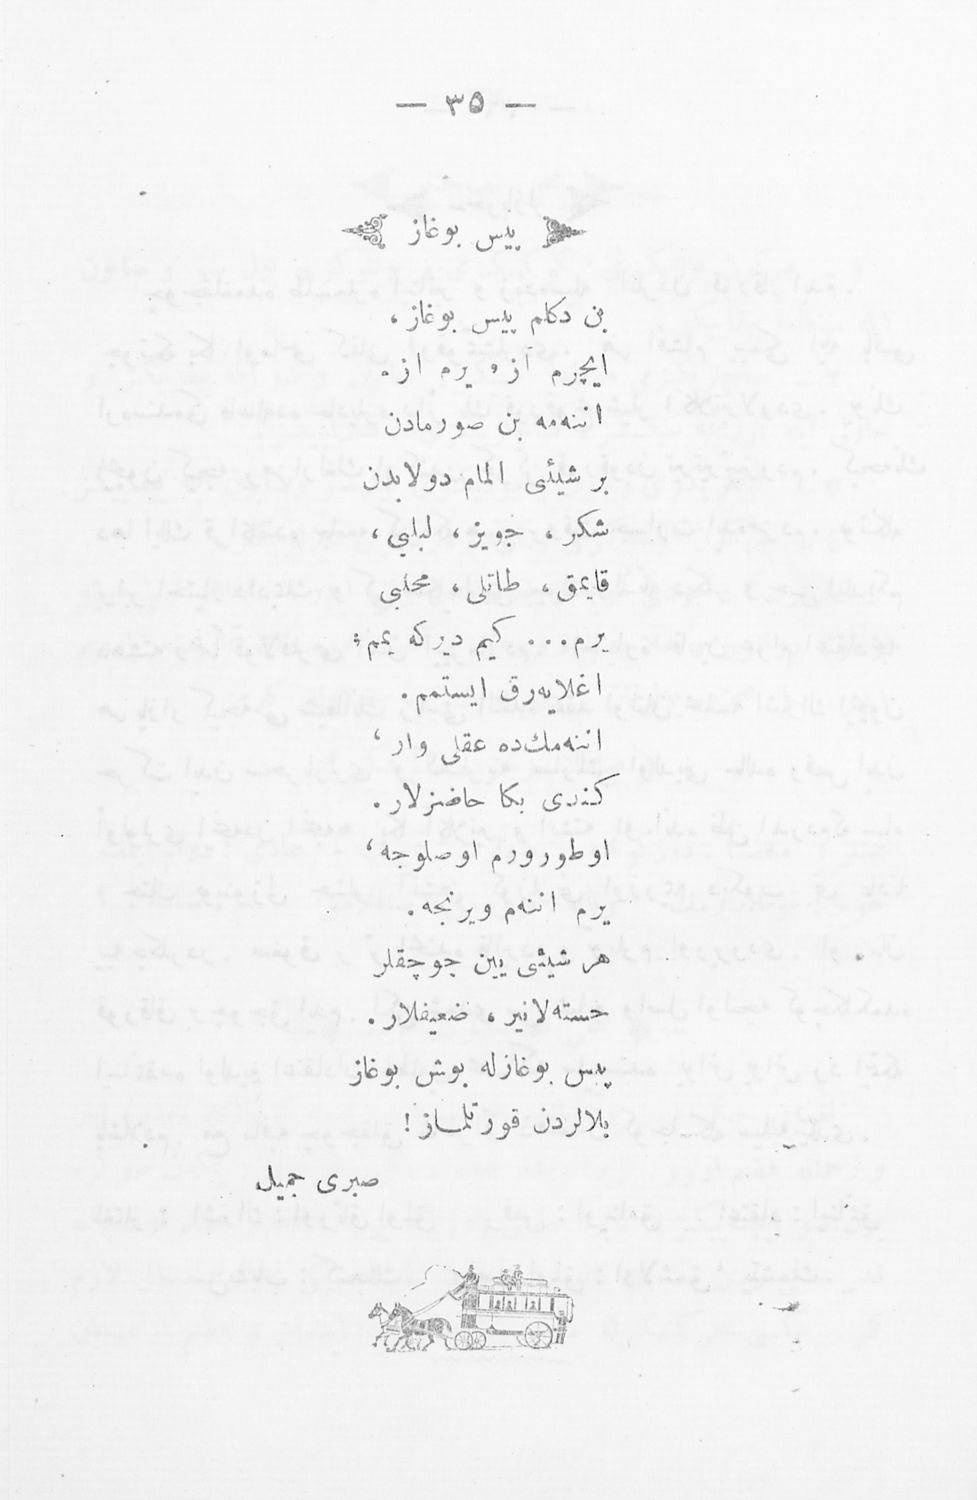 — ٣٥ —
پيس بوغاز
بن دكلم پيس بوغاز،
ايچرم آز، يرم از.
اننه‌مه بن صورمادن
بر شيئى المام دولابدن
شكر، جويز، لبلبى،
قايمق، طاتلى، محلبى
يرم... كيم ديركه يمم؛
اغلايه‌رق ايستمم.
اننه‌مك‌ده عقلى وار،
كندى بكا حاضرلار.
اوطورورم اوصلوجه،
يرم اننه‌م ويرنجه.
هر شيئى يين جوجقلر
خسته‌لانير، ضعيفلار.
پيس بوغازله بوش بوغاز
بلالردن قورتلماز!
صبرى جميل